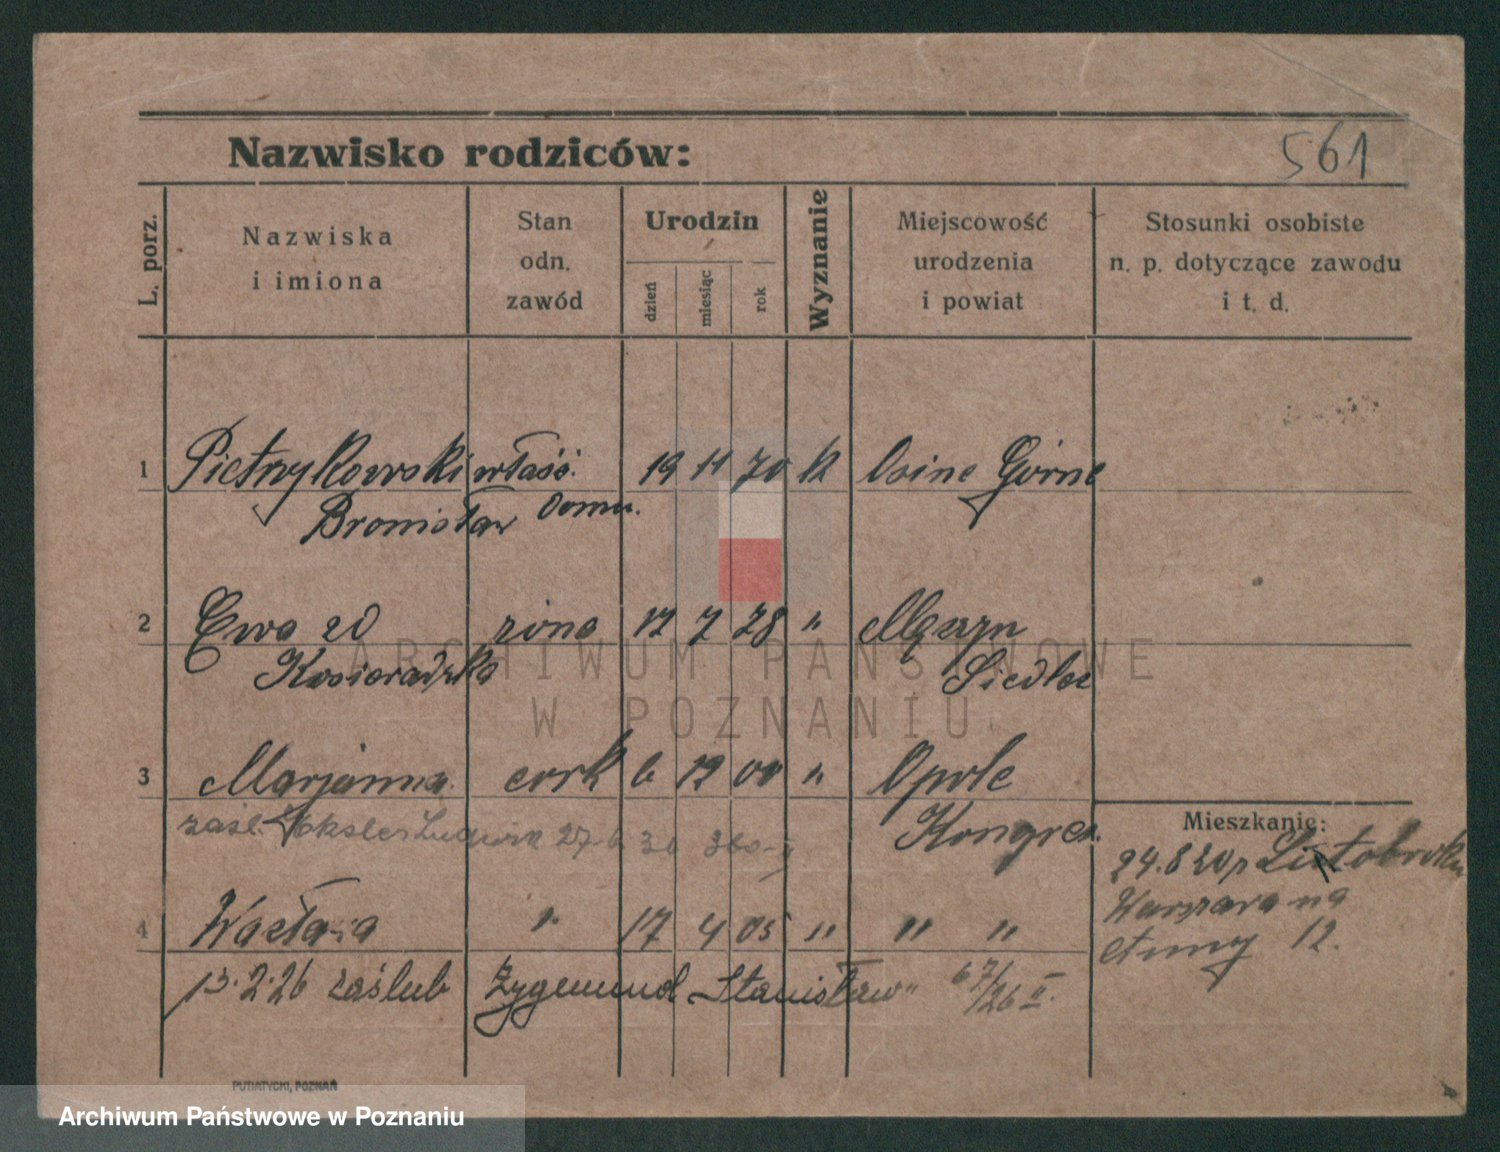 561
Nazwisko rodziców:
L. porz.
Nazwiska
i imiona
Stan
odn.
zawód
Urodzin
dzień
miesiąc
rok
Wyznanie
Miejscowość
urodzenia
i powiat
Stosunki osobiste
n. p. dotyczące zawodu
i t. d.
1 Pietrzykowski właść. 19 11 70 k Osine Górne
Bronisław domu.
2 Ewa zd żona 12 7 78 " 
Kosieradzka Siedlec
3 Marjanna córk 6 12 00 " Opole
zaśl. 27.6 30 Kongres.
Mieszkanie:
24.8 20 p
Warszawa na
12.
4 Wacława " 17 4 05 " " "
13.2.26 zaślub Zygemund Stanisław 67/26 II.
PUTIATYCKI, POZNAŃ
ARCHIWUM PAŃSTWOWE
W POZNANIU
Archiwum Państwowe w Poznaniu